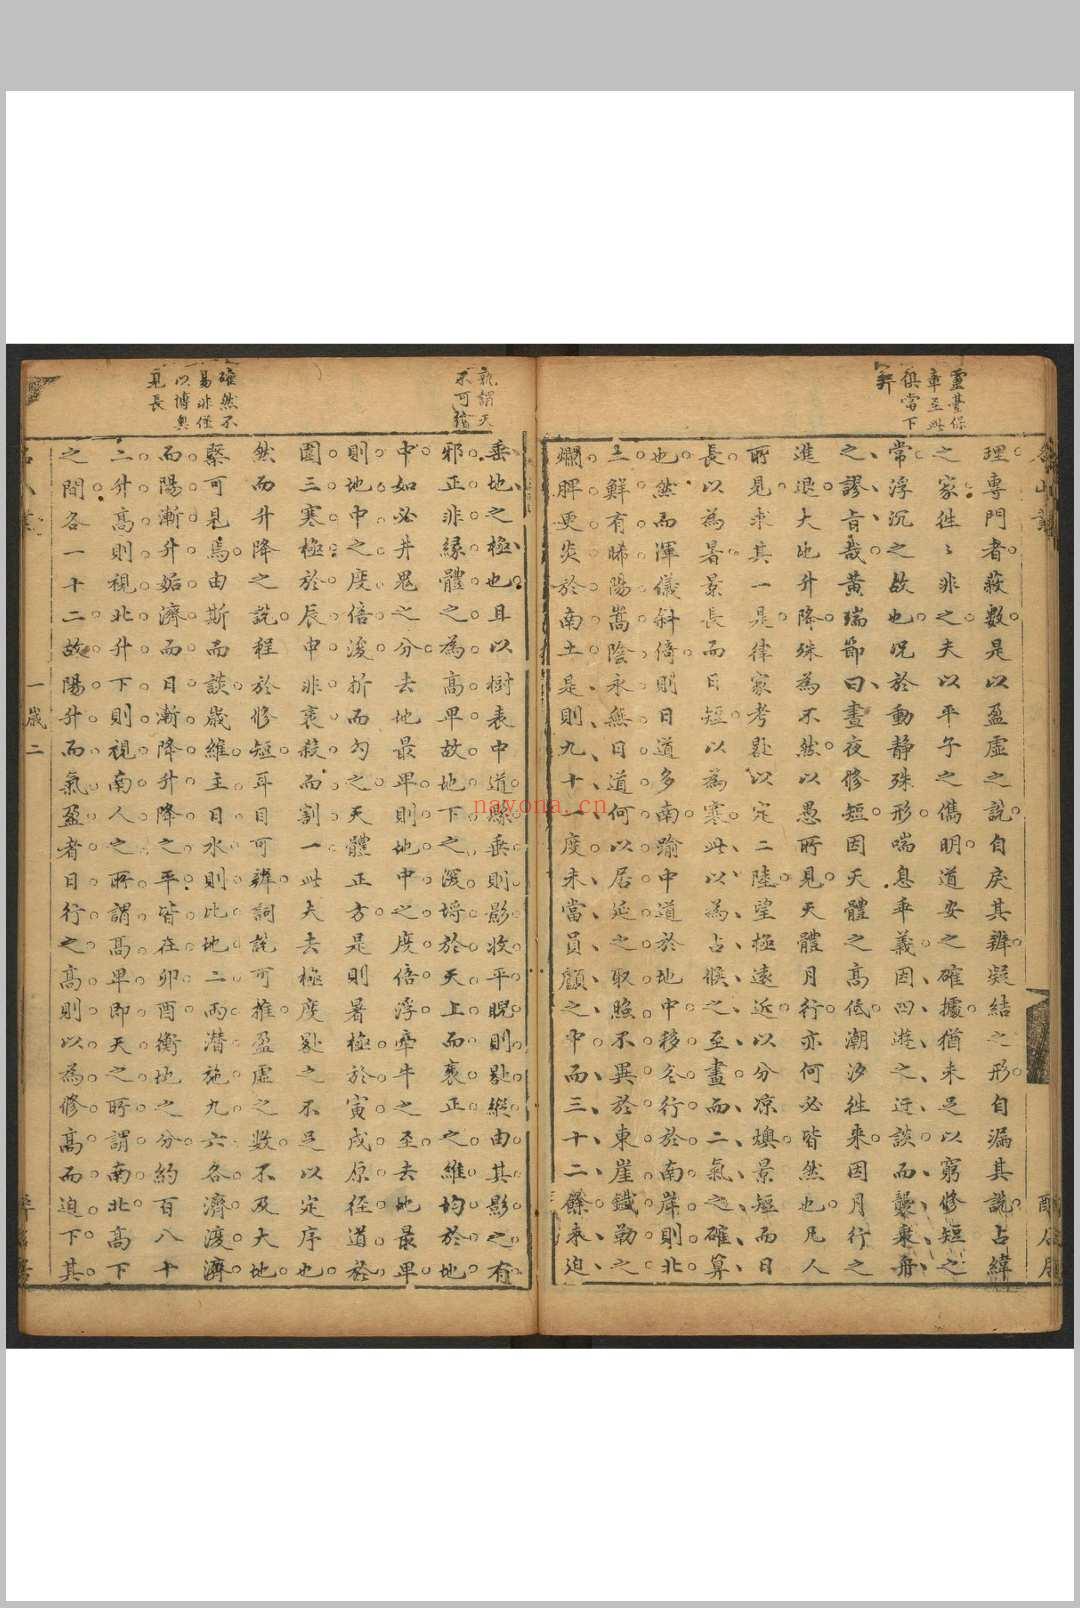 靈臺保
章至此
俱當下
理專門者蔽數是以盈虛之說自戾其辨凝結之形自漏其說占緯
之家往〻非之夫以平子之儁明道安之確據猶未足以窮修短之
常浮沉之故也况於動靜殊形喘息乖義因四遊之迂談而襲乗舟
之謬旨哉黄瑞節曰晝夜修短因天體之高低潮汐往来因月行之
進退大地升降殊為不然以愚所見天體月行亦何必皆然也凡人
所見求其一是律家考晷以定二陸望極遠近以分凉燠景短而日
長以為暑景長而日短以為寒此以為占候之至畫而二氣之確算
也然而渾儀斜倚則日道多南踰中道於地中移冬行於南岸則北
土鮮有晞陽嵩陰永無日道何以居延之取照不異於東崖鐵勒之
爛脾更炎於南土是則九十一度未當員顱之中而三十二餘来迫
孰謂天
不可
垂地之極也且以樹表中道縣垂則影收平睨則晷縱由其影之有
邪正非緣體之為高卑故地下之深埒於天上而袤正之維均於地
中如必井鬼之分去地最卑則地中之度倍浮牽牛之至去地最卑
則地中之度倍浚折而勾之天體正方是則暑極於寅戌原徑道於
圍三寒極於辰申非衰殺而割一此夫去極度晷之不足以定序也
然而升降之說程於修短耳目可辨詞說可推盈虛之數不及大地
緊可見焉由斯而談歲維主日水則比地二兩潜施九六各濟渡濟
而陽漸升姤濟而日漸降升降之平皆在卯酉衡地之分約百八十
二升高則視北升下則視南人之所謂高卑即天之所謂南北高下
之間各一十二故陽升而氣盈者日行之高則以為修高而迫下其
確然不
易非僅
以博奥
見長
一歲二
nayona.cn